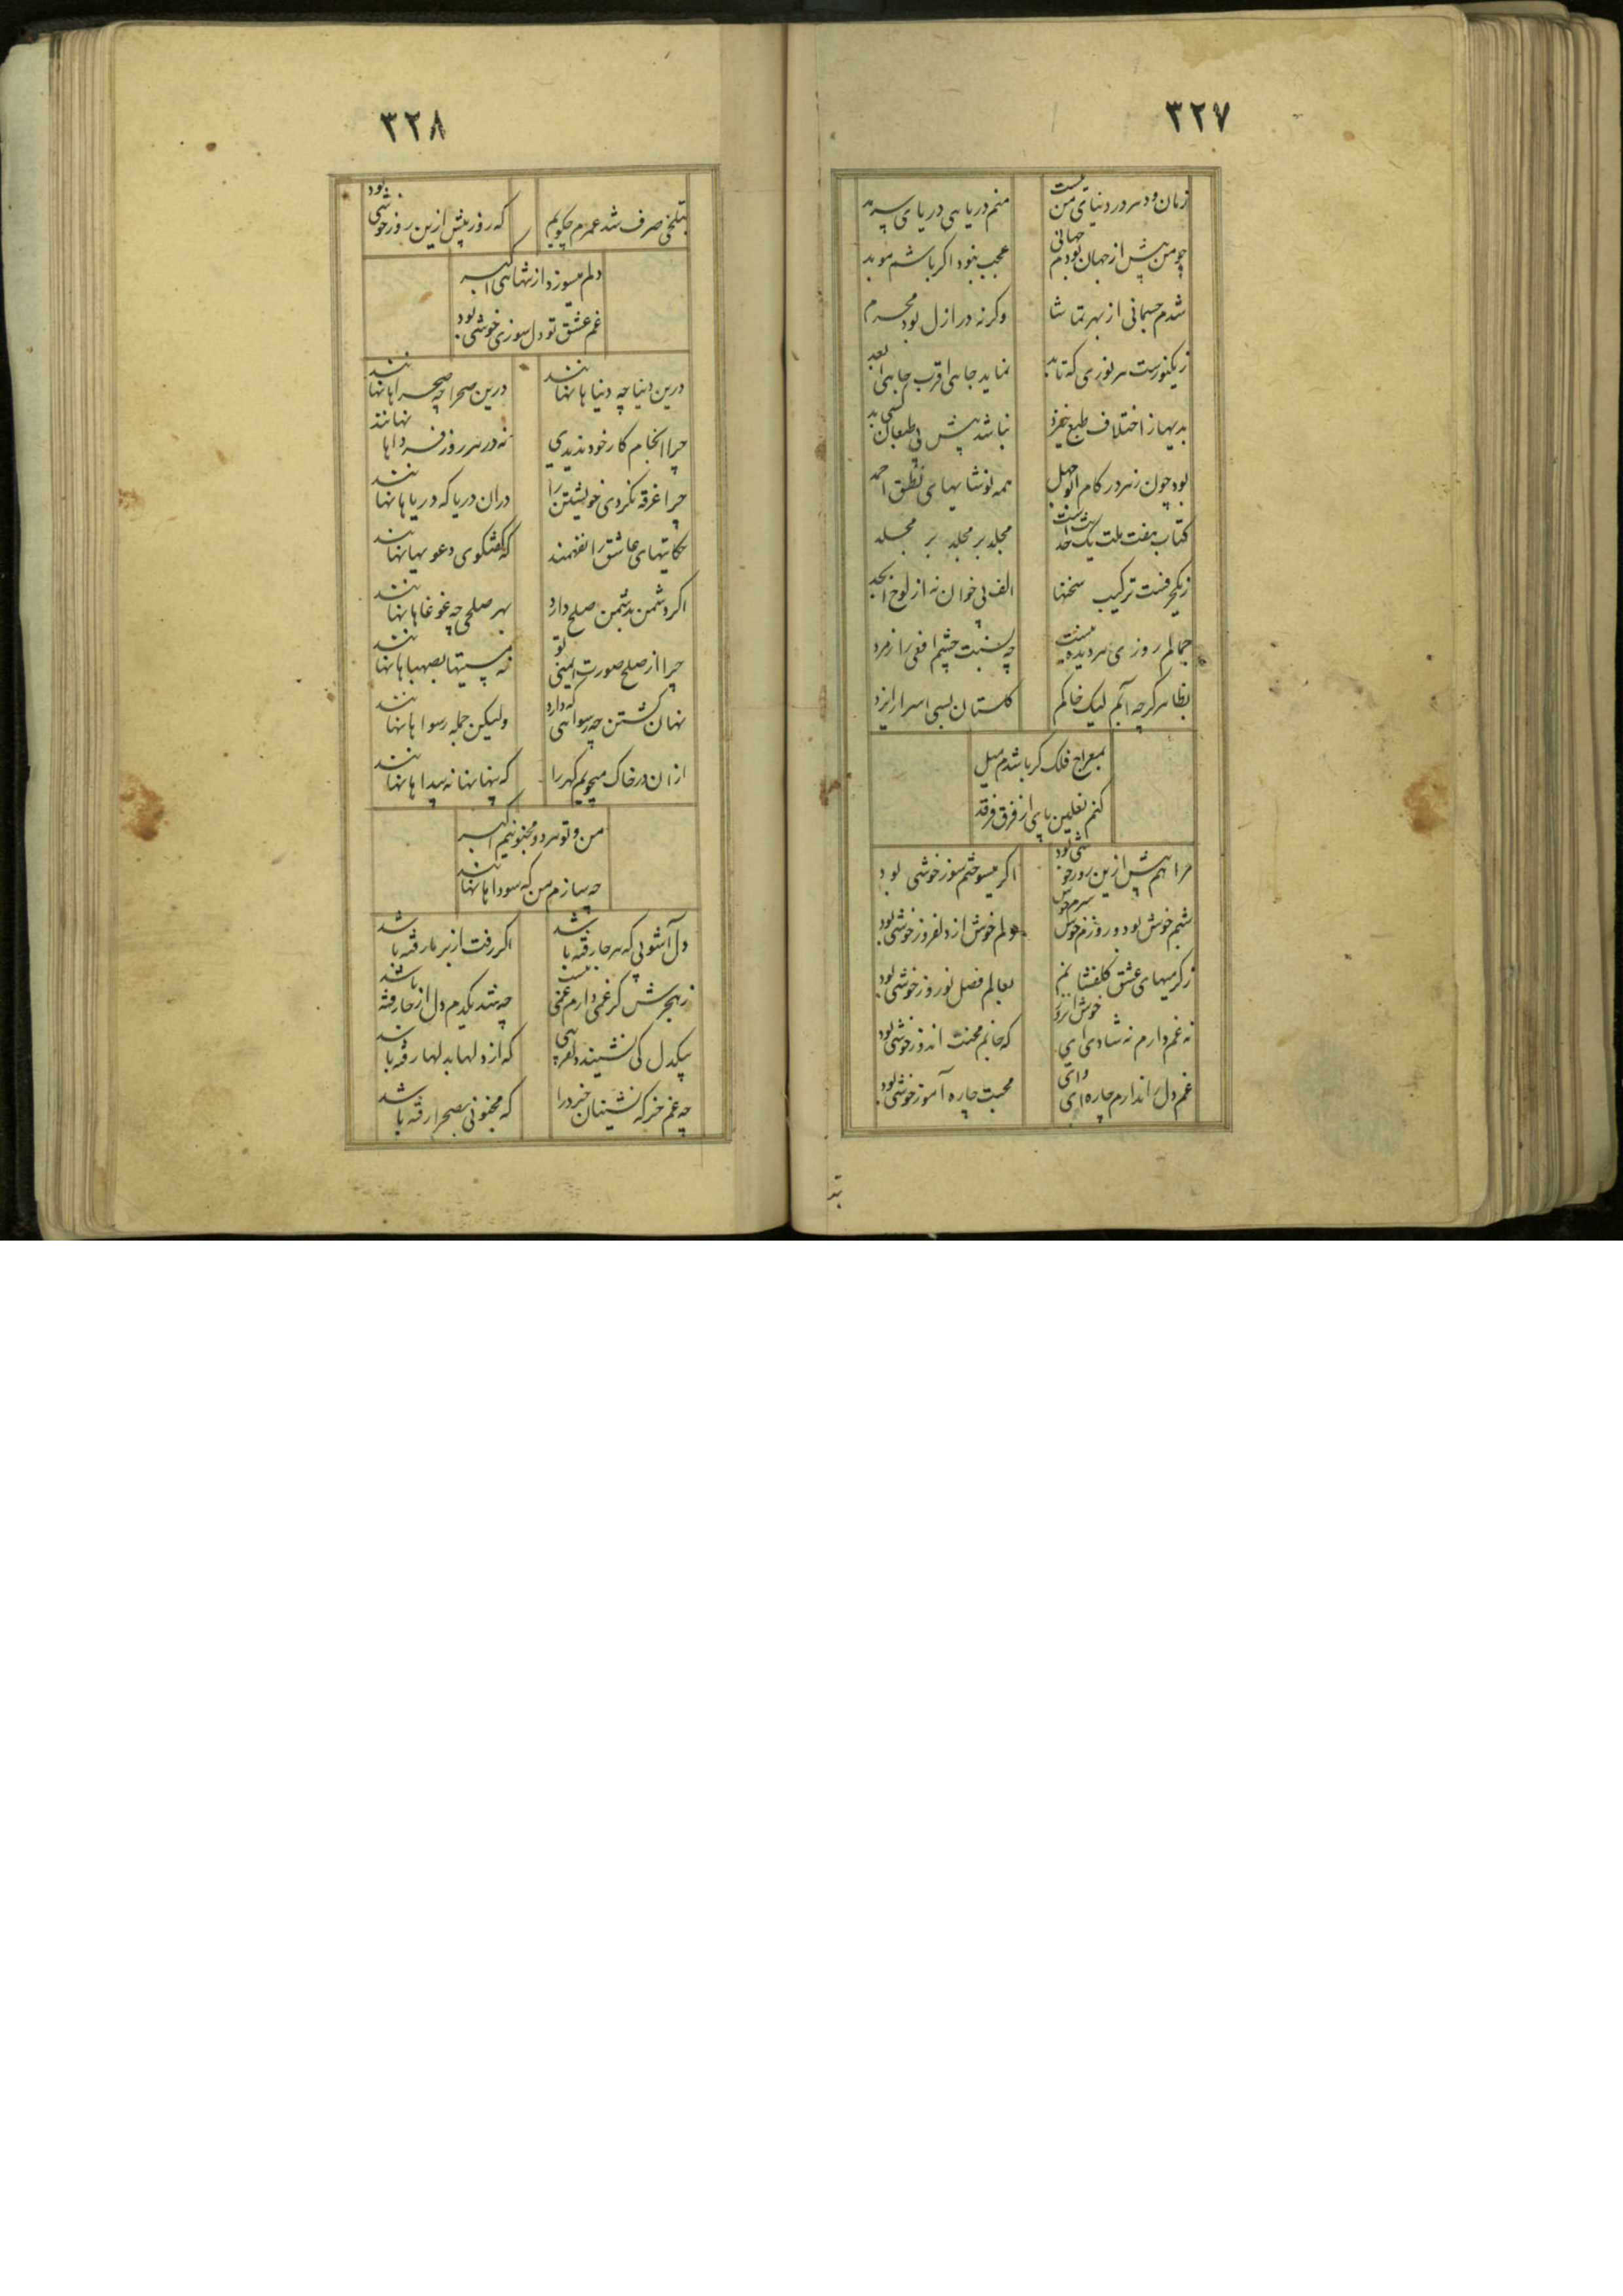 ٣٢٧
زمان و دهر در دنیای من نیست
منم دریا بی دریای سرمد
چو من پیش از جهان بودم جهانی
عجب نبود اکر باشم موبد
شدم جسمانی از بهر تماشا
وکرنه در ازل بودم مجرم
ز یکنورست هر نوری که تابد
نماید جاهی اقرب جاهی ابعد
بدیها از اختلاف طبع خیزد
نباشد پیش بی طبعان بد
بود چون زهر در کام ابوجهل
همه نوشابهای نطق احمد
کتاب هفت ملت یک
مجلد بر مجلد بر مجلد
ز یکحرفست ترکیب سخنها
الف بی خوان نه از لوح ابجد
جمالم روزی هر دیده نیست
چه نسبت چشم افعی را زمرد
بظاهر کرچه آبم لیک خاکم
کلستان بسی اسرار ایزد
بمعراج فلک کر باشدم میل
کنم نعلین پای از فرق فرقد
مرا هم پیش ازین روز خوشی بود
اکر میسوختم سوز خوشی بود
شبم خوش بود و روزم خوش سرم خوش
دلم خوش از دلفروز خوشی بود
ز کرمیهای عشق کلفشانم
بعالم فصل نوروز خوشی بود
نه غم دارم نه شادی ای خوش انروز
که جانم محنت اندوز خوشی بود
غم دل را ندارم چاره ای وای
محبت چاره آموز خوشی بود
٣٢٨
بتلخی صرف شد عمرم چکویم
که روز پیش ازین روز خوشی بود
دلم میسوزد از تنهایی اکبر
غم عشق تو دل سوزی خوشی بود
درین دنیا چه دنیاها نهانند
درین صحرا چه صحراها نهانند
چرا انجام کار خود ندیدی
نه در هر روز فرداها نهانند
چرا غرقه نکردی خویشتن را
دران دریا که دریاها نهانند
حکایتهای عاشق را نفهمند
که کفتکوی دعویها نهانند
اکر دشمن بدشمن صلح دارد
بهر صلحی چه غوغاها نهانند
چرا از صلح صورت ایمنی تو
نه مستیها بصهباها نهانند
نهان کشتن چه رسوایی که دارد
ولیکن جمله رسواها نهانند
ازان در خاک میجویم کهر را
که پنهانها نه پیداها نهانند
من و تو هر دو مجنونیم اکبر
چه سازم من که سوداها نهانند
دل آشوبی که هر جا رفته باشد
اکر رفت از بر ما رفته باشد
ز هجرش کر غمی دارم غمی نیست
چه شد یکدم دل از جا رفته باشد
بیکدل کی نشیند دلفریبی
که از دلها بدلها رفته باشد
چه غم خرکه نشینان خرد را
که مجنونی بصحرا رفته باشد